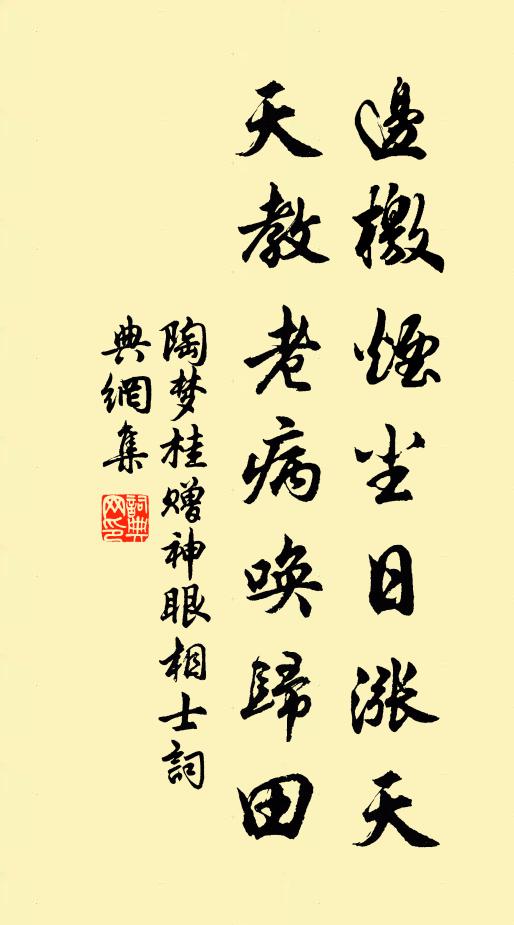 邊檄煙尘日漲天
天教老病唤歸田
陶梦桂赠神眼相士詞
典網集
詞典
网印